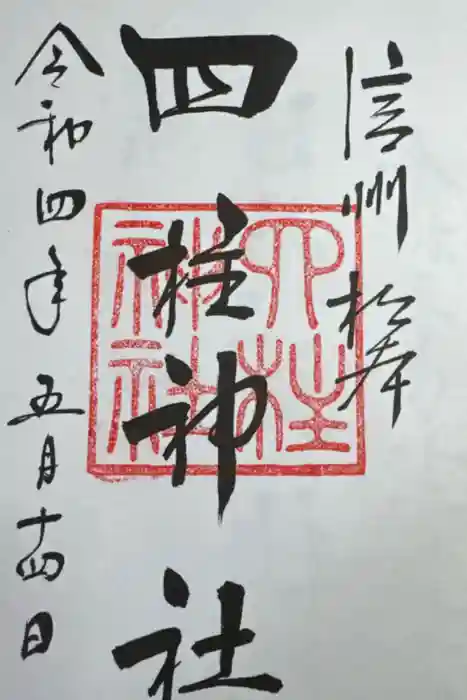 信州松本
四柱神社
四柱神社
令和四年五月十四日